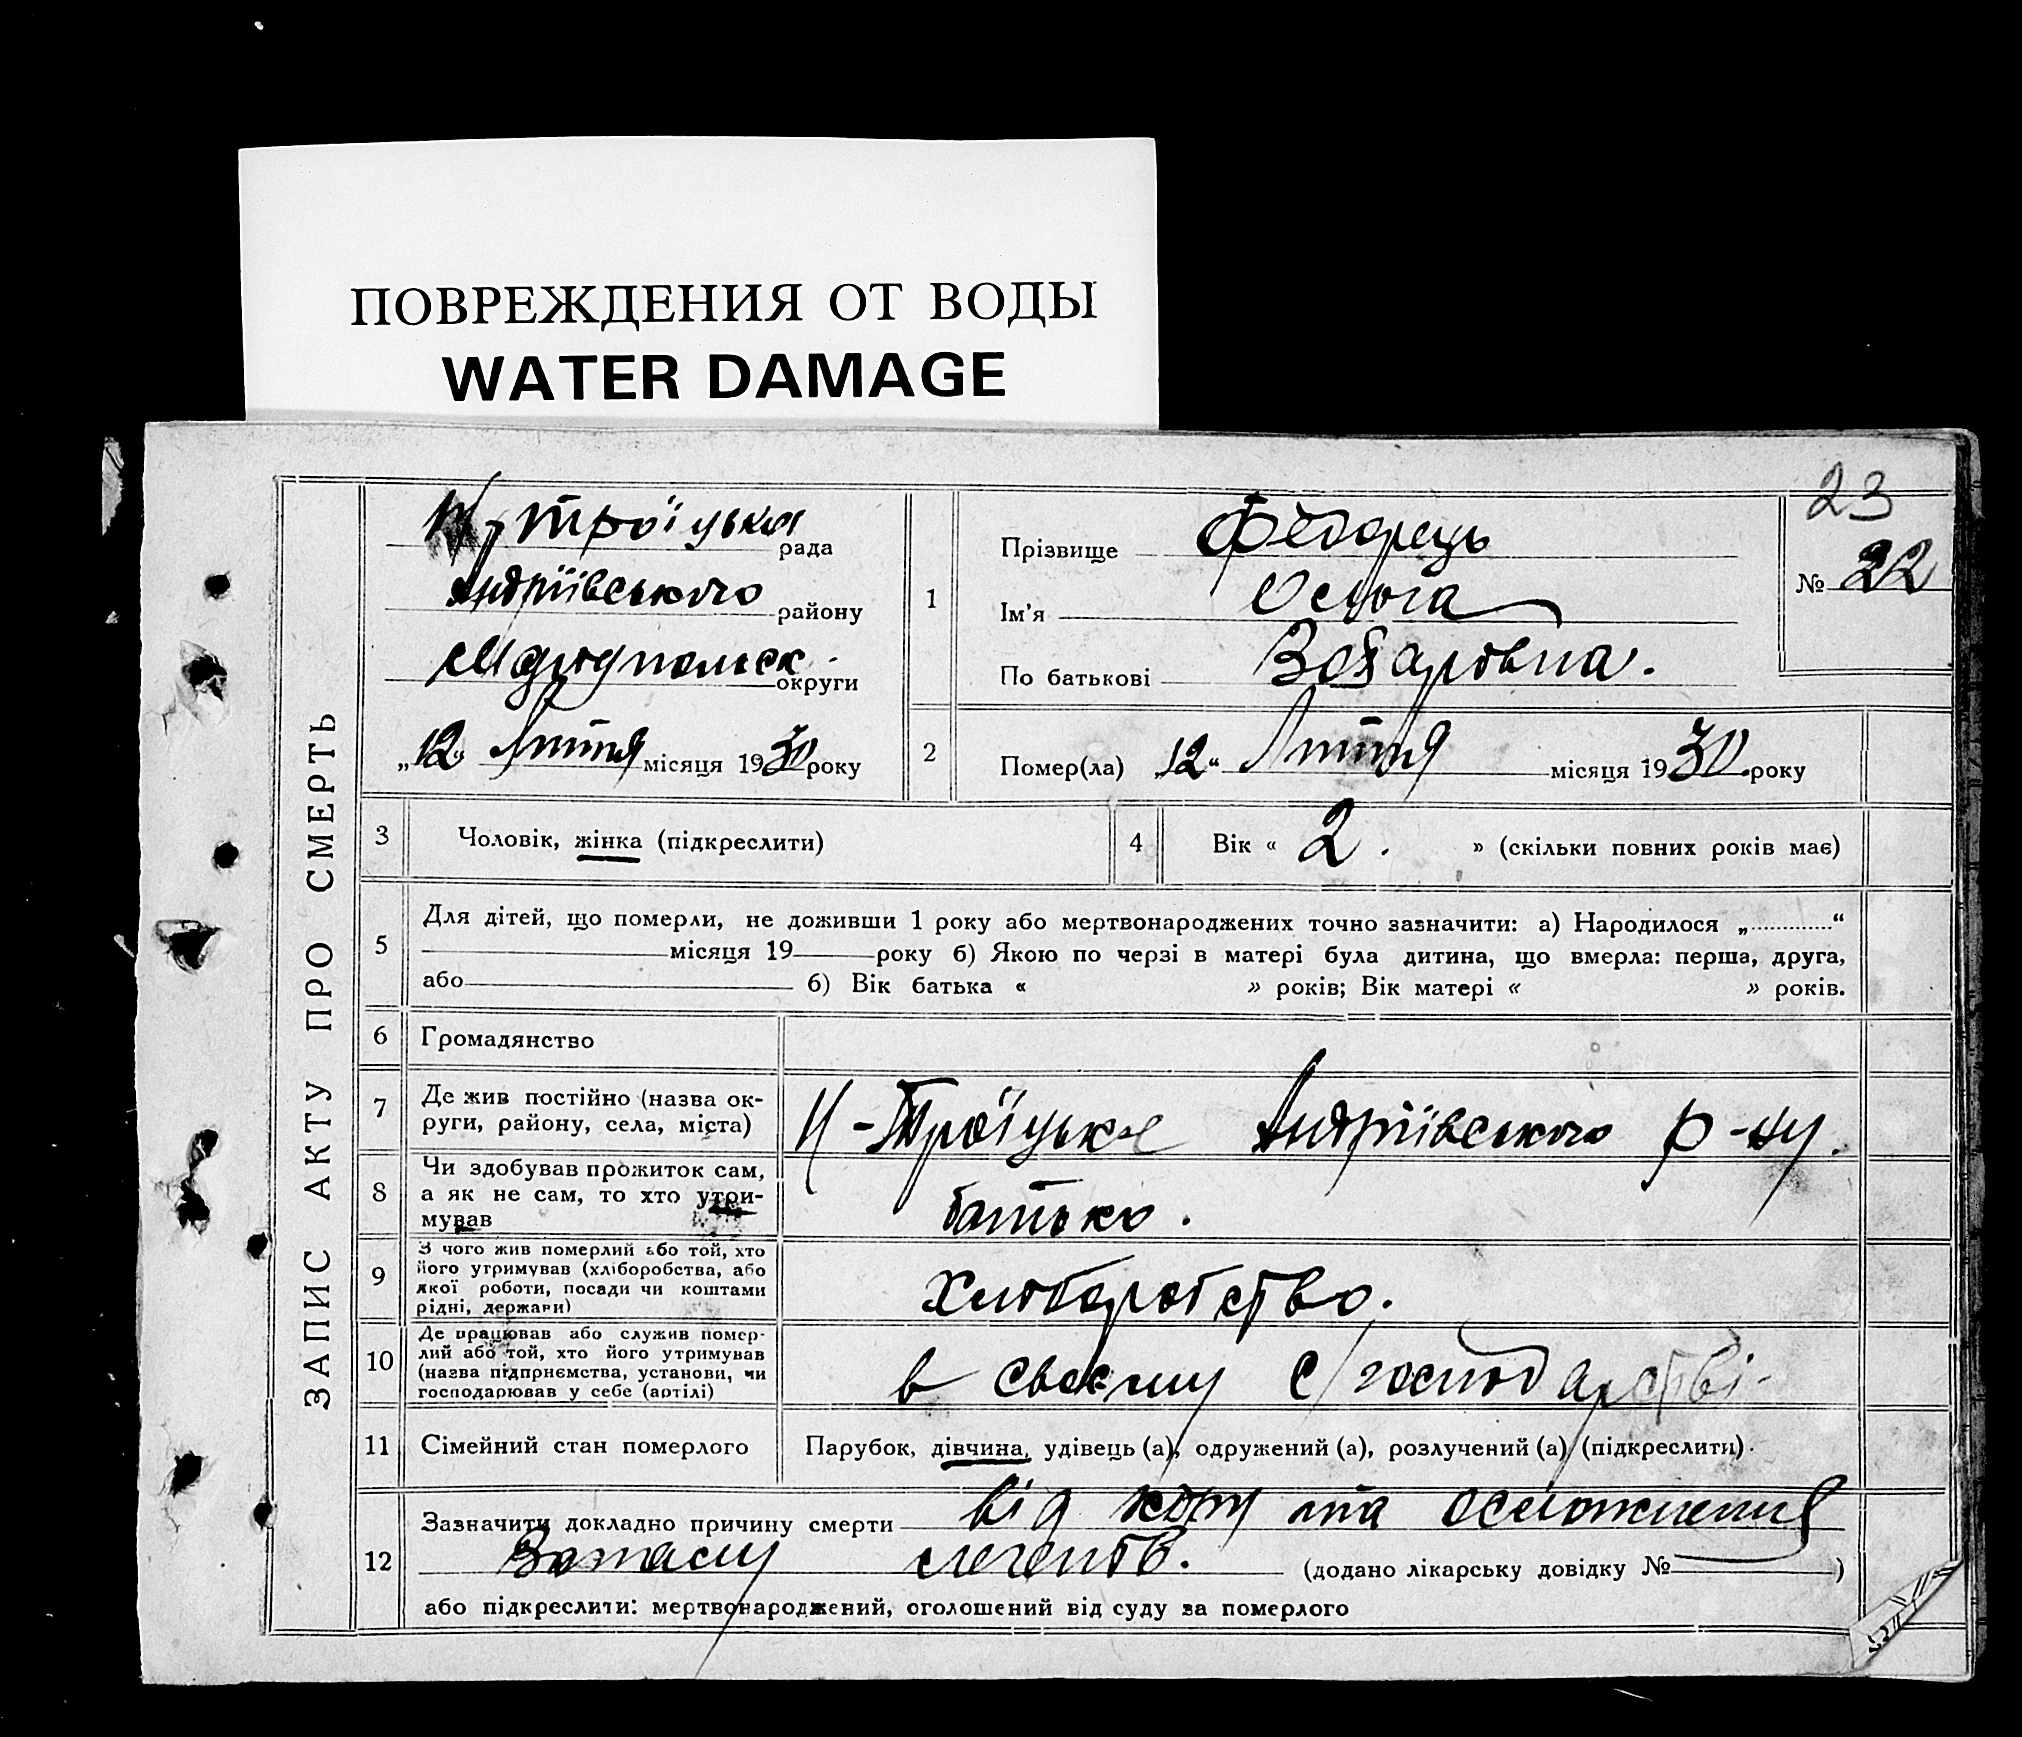 ПОВРЕЖДЕНИЯ ОТ ВОДЫ
WATER DAMAGE
23
ЗАПИС АКТУ ПРО СМЕРТЬ
Н-троїцька рада
Андріївського району
Маріупольск. округи
„12“ Лютня місяця 1930 року
1
Прізвище Федорець
Ім'я Ольга
По батькові
№ 22
2
Помер(ла) „12“ Лютня місяця 1930. року
3 Чоловік, жінка (підкреслити)
4 Вік « 2. » (скільки повних років має)
5 Для дітей, що померли, не доживши 1 року або мертвонароджених точно зазначити: а) Народилося „.............“
місяця 19 року б) Якою по черзі в матері була дитина, що вмерла: перша, друга,
або б) Вік батька « » років; Вік матері « » років.
6 Громадянство
7 Де жив постійно (назва ок-
руги, району, села, міста)
Н-Троїцьке Андріївського р-ну.
8 Чи здобував прожиток сам,
а як не сам, то хто утри-
мував
батько.
9 З чого жив померлий або той, хто
його утримував (хліборобства, або
якої роботи, посади чи коштами
рідні, держави)
Хлоборобство.
10 Де працював або служив помер-
лий або той, хто його утримував
(назва підприємства, установи, чи
господарював у себе (артілі)
в своєму с/господарстві.
11 Сімейний стан померлого
Парубок, дівчина, удівець (а), одружений (а), розлучений (а) (підкреслити).
12 Зазначити докладно причину смерти від кору та осложнения
легенів. (додано лікарську довідку № )
або підкреслити: мертвонароджений, оголошений від суду за померлого